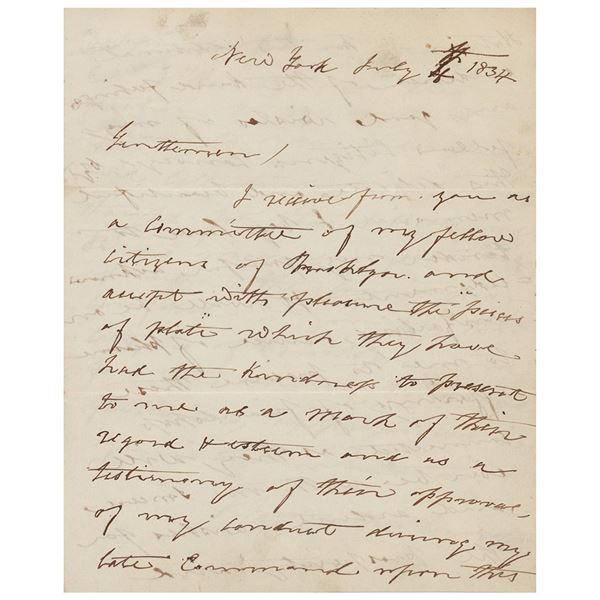 New York July 4 1834
Gentlemen /
I receive from you as
a committee of my fellow
citizens of Brooklyn and
accept with pleasure the "pieces
of plate" which they have
had the kindness to present
to me as a mark of their
regard & esteem and as a
testimony of their approval
of my conduct during my
late Command upon this